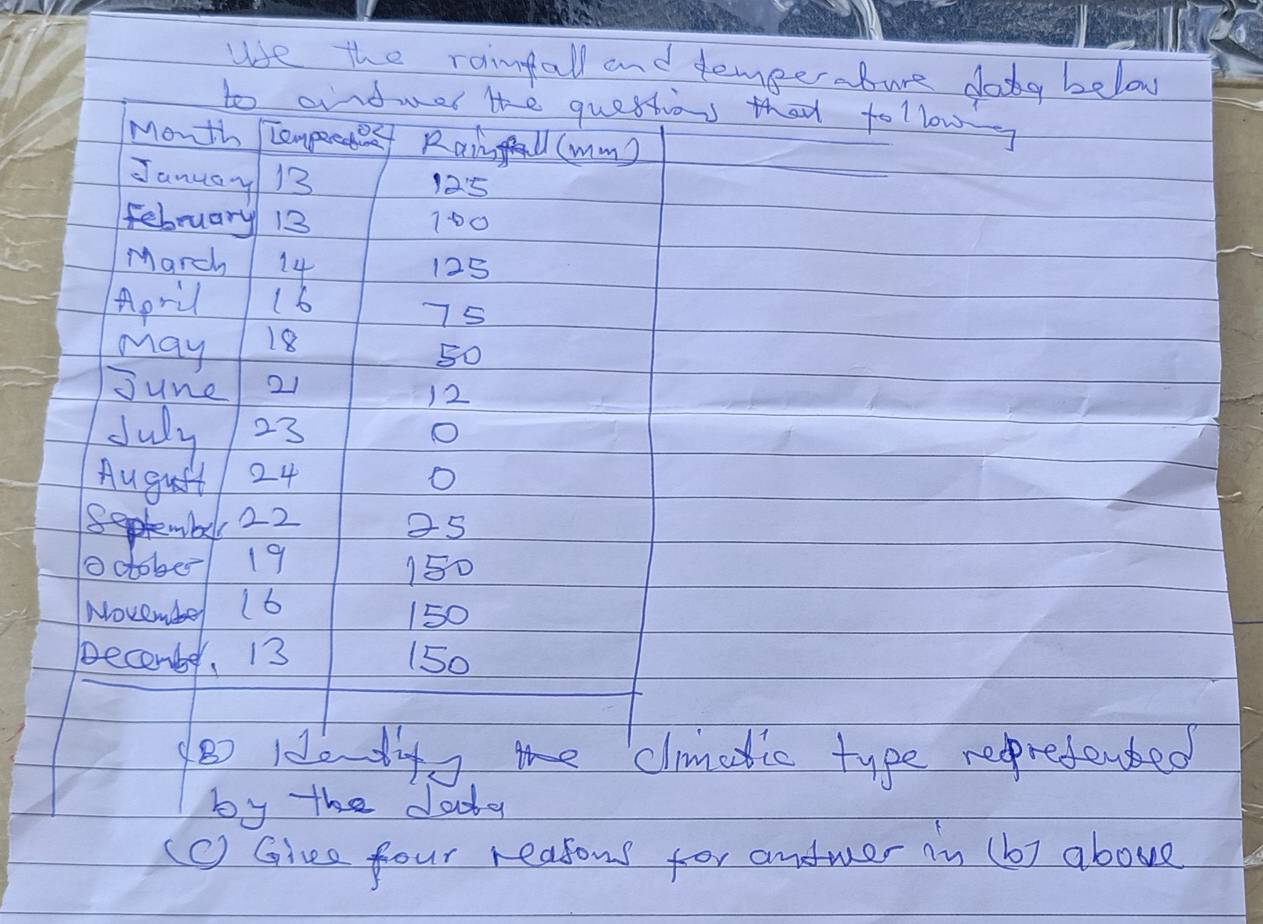 Use the rainfall and temperature data below
to andwer the questions that following
Month Temperature °C Rainfall (mm)
January 13 125
February 13 100
March 14 125
April 16 75
May 18 50
June 21 12
July 23 0
August 24 0
September 22 25
October 19 150
November 16 150
December. 13 150
(B) Identify the climatic type represented
by the data
(C) Give four reasons for andwer in (b) above